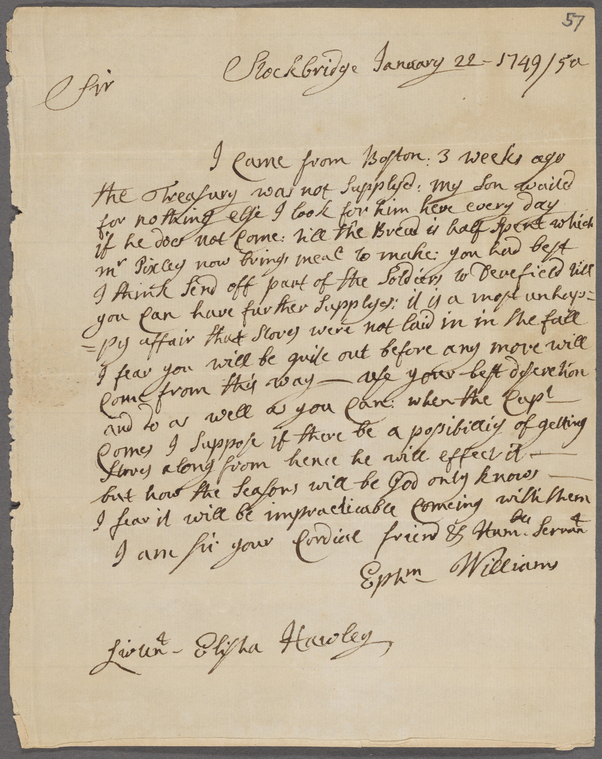 57
Stockbridge January 22 - 1749/50
Sir
I Came from Boston: 3 weeks ago
the Treasury was not Supplyd: my Son waited
for nothing else I look for him here every day
if he doer not Come: till the Bread is half Spent which
mr Pixley now brings meal to make: you had best
I think Send off part of the Soldiers to Derefield till
you Can have further Supplyes: it is a most unhap=
=py affair that Stores were not laid in in the fall
I fear you will be quite out before any more will
Come from this way — use your best discretion
and do as well as you Can: when the Capt
Comes I Suppose if there be a posibility of getting
Stores along from hence he will effect it —
but how the Seasons will be God only knows —
I fear it will be impracticable Comeing with them
I am Sir your Cordial friend & Humble Servant
Ephm Williams
Lieut - Elisha Hawley